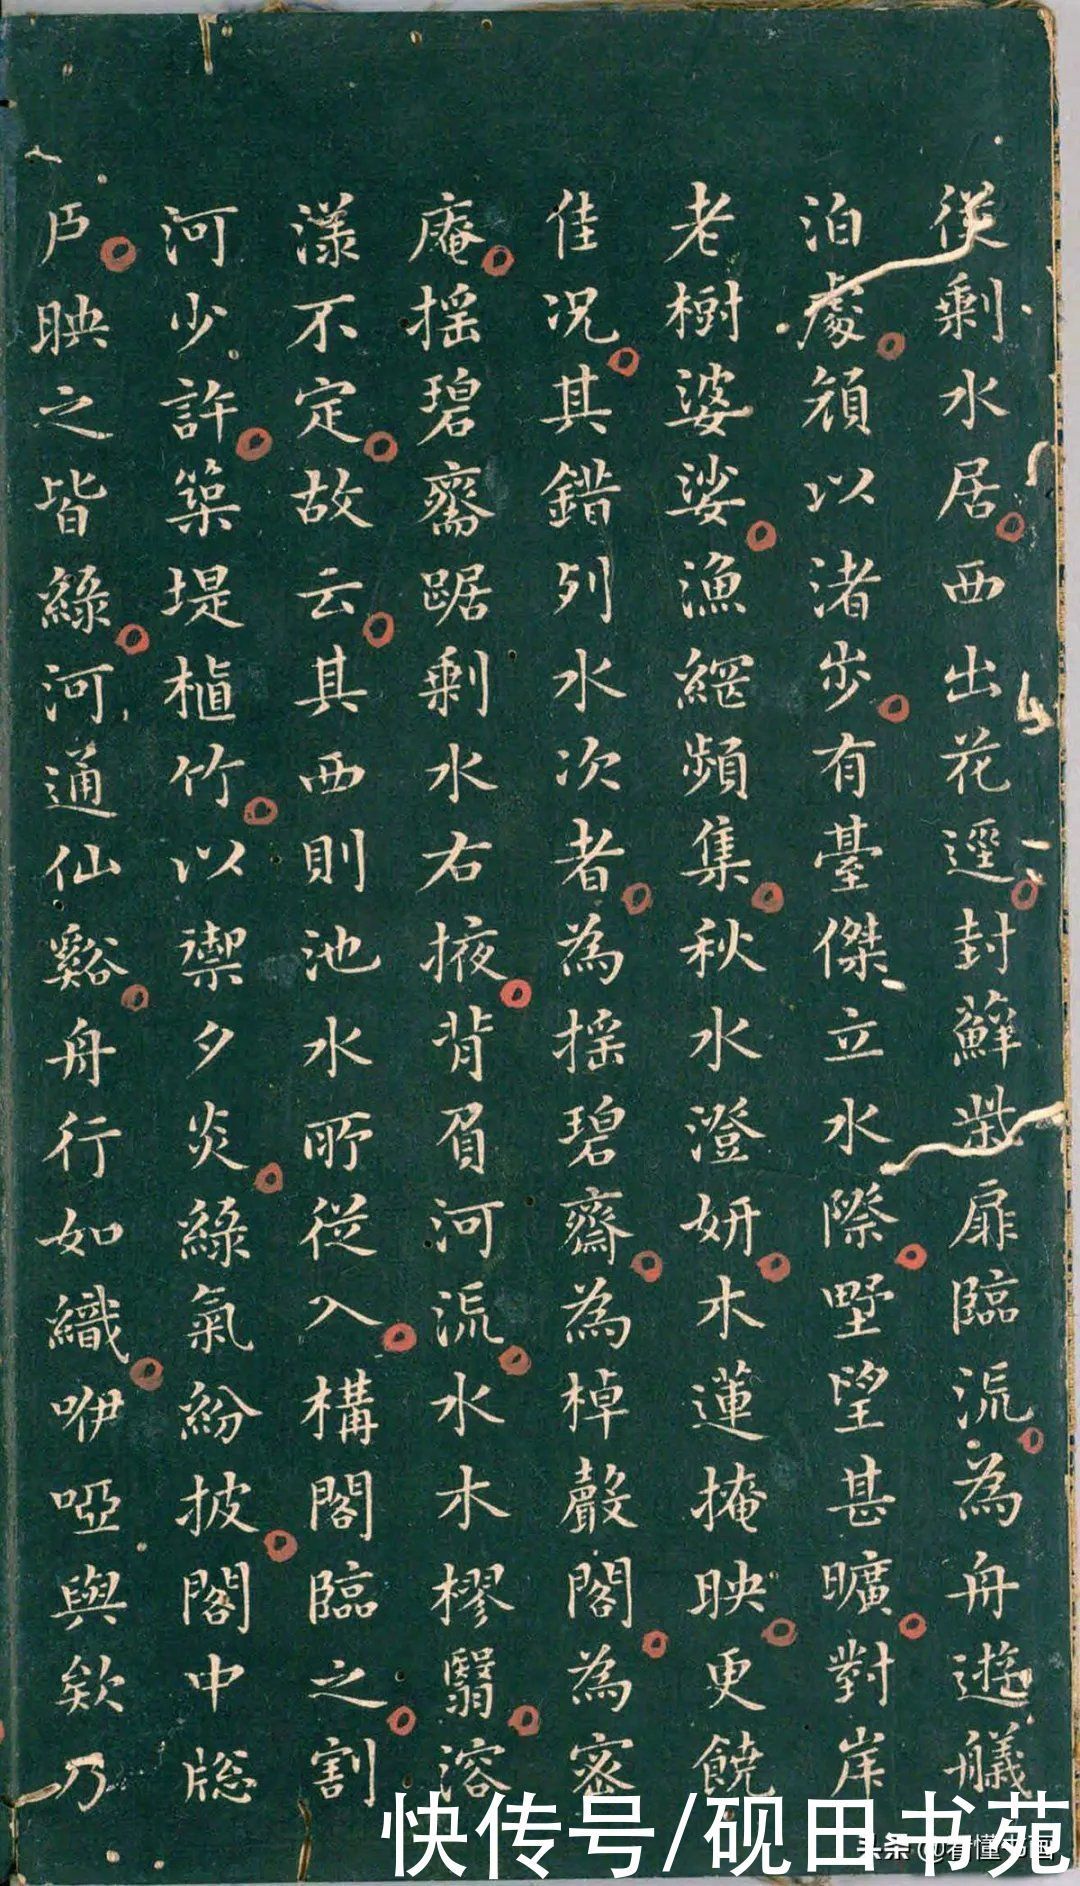 從剩水居西出花逕封蘚柴扉臨流為舟遊艤
泊處頫以渚步有臺傑立水際墅望甚曠對岸
老樹婆娑漁網頻集秋水澄妍木蓮掩映更饒
佳況其錯列水次者為搖碧齋為棹聲閣為密
庵搖碧齋踞剩水右掖背眉河流水木樛翳溶
漾不定故云其西則池水所從入構閣臨之割
河少許築堤植竹以禦夕炎綠氣紛披閣中牕
戶映之皆綠河通仙谿舟行如織咿啞與欸乃
快传号/砚田书苑
头条 @看懂书画